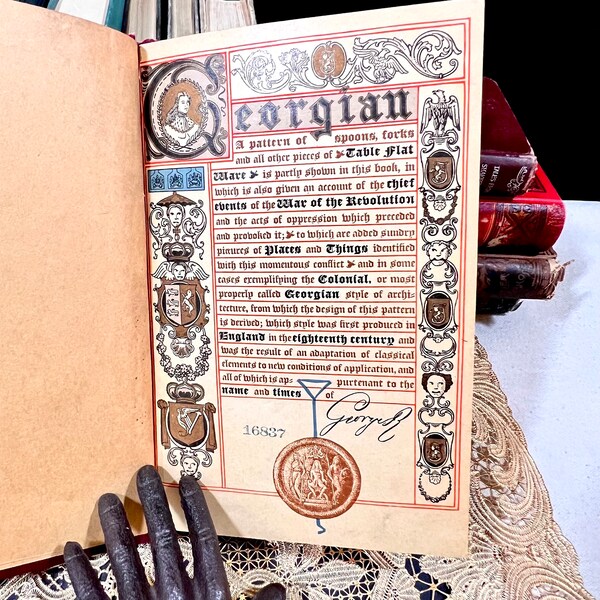 Georgian
A pattern of spoons, forks
and all other pieces of Table Flat
Ware is partly shown in this book, in
which is also given an account of the chief
events of the War of the Revolution
and the acts of oppression which preceded
and provoked it; to which are added sundry
pictures of Places and Things identified
with this momentous conflict and in some
cases exemplifying the Colonial, or most
properly called Georgian style of archi-
tecture, from which the design of this pattern
is derived; which style was first produced in
England in the eighteenth century and
was the result of an adaptation of classical
elements to new conditions of application, and
all of which is ap- purtenant to the
name and times of
George R
16837